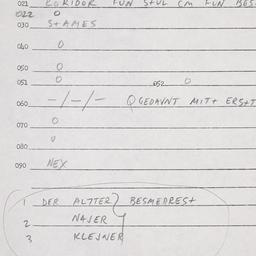 021 KORIDOR FUN STUL CM FUN BES
022 0
030 STAMES
040 0
050 0
051 0 052 0
060 -/-/- Q GEDAVNT MITT ERST
070 0
080 0
090 NEX
1 DER ALTTER } BESMEDREST
2 NAJER
3 KLEJNER